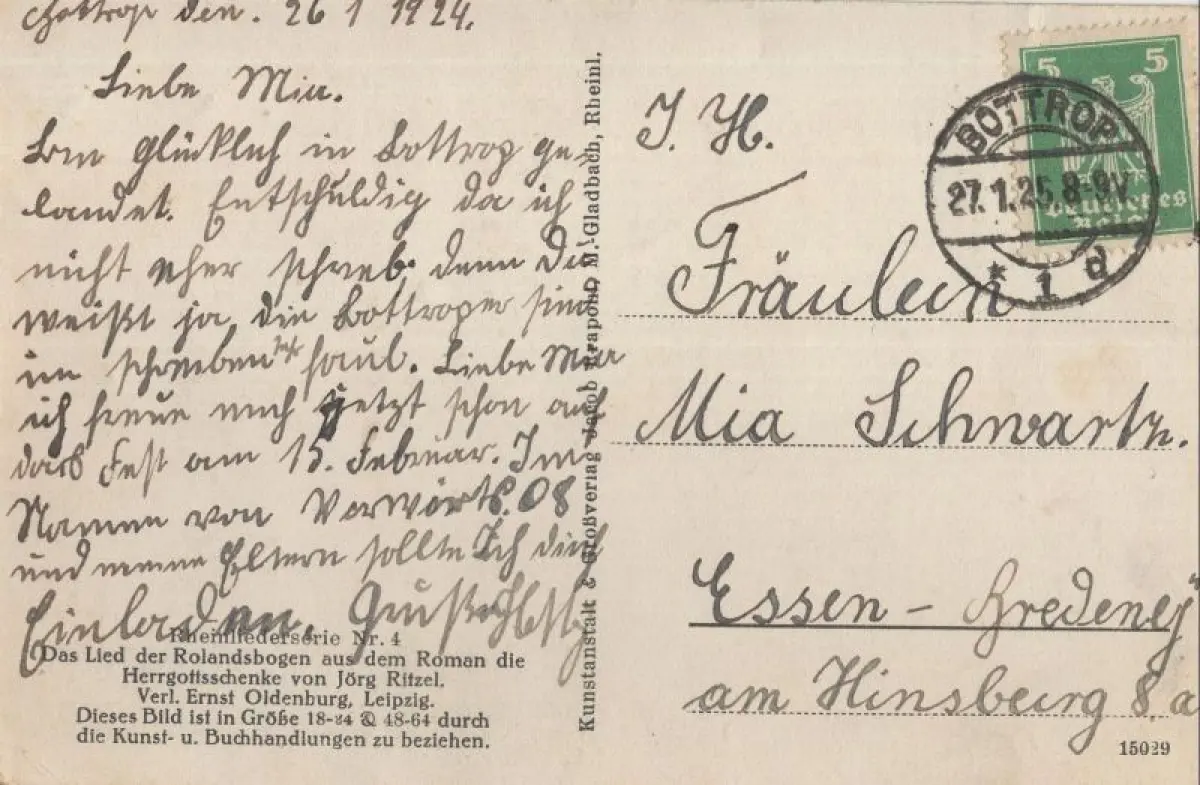 Bottrop den. 26 1 1924.
Liebe Mia.
Bin glücklich in Bottrop ge-
landet. Entschuldig da ich
nicht eher schreb. denn Du
weißt ja, die Bottroper sind
im schreiben faul. Liebe Mia
ich freue mich jetzt schon auf
das Fest am 15. Februar. Im
Namen von Vorwärts. 08
und meine Eltern sollte Ich dich
Einladen.
Rheinliederserie Nr. 4
Das Lied der Rolandsbogen aus dem Roman die
Herrgottsschenke von Jörg Ritzel.
Verl. Ernst Oldenburg, Leipzig.
Dieses Bild ist in Größe 18-24 & 48-64 durch
die Kunst- u. Buchhandlungen zu beziehen.
Kunstanstalt & Großverlag Jacob Krapohl, M.-Gladbach, Rheinl.
5 5
Deutsches
Reich
BOTTROP
27.1.25.8-9V
* 1 d
I. H.
Fräulein
Mia Schwartz.
Essen - Bredeney
am Hinsberg 8. a
15029